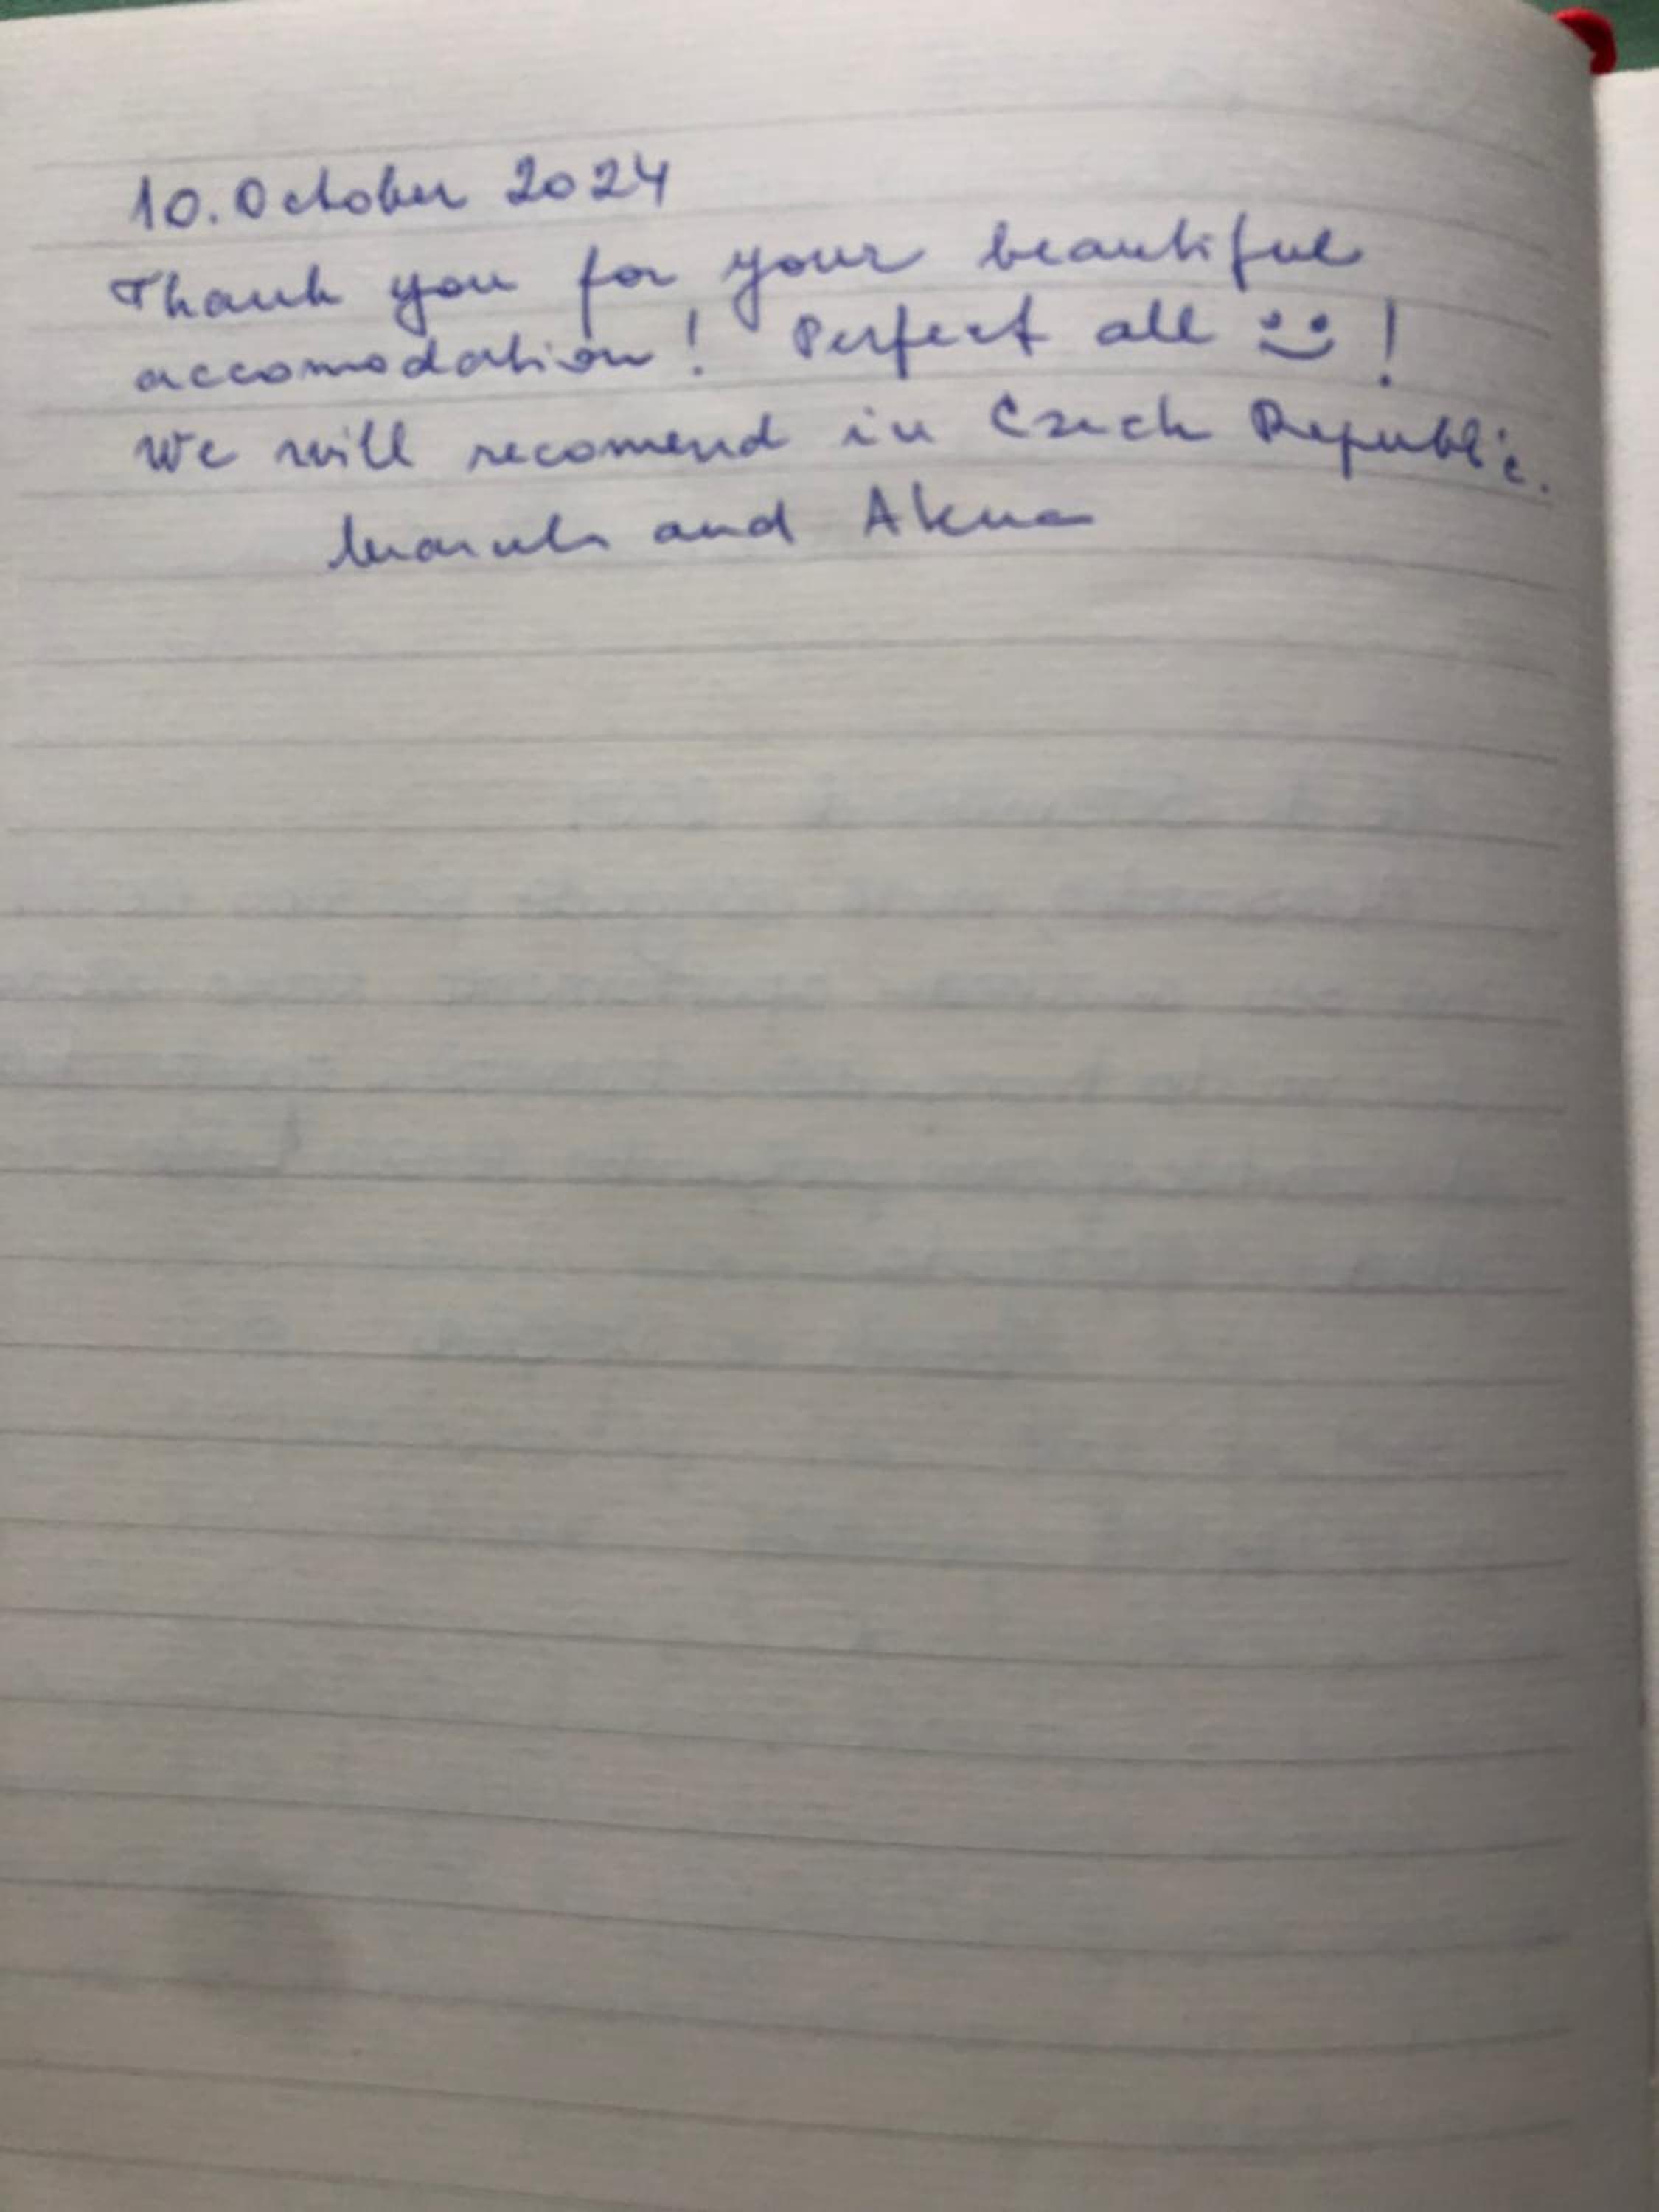 10. October 2024
Thank you for your beautiful
accomodation! Perfect all !
We will recomend in Czech Republic.
and